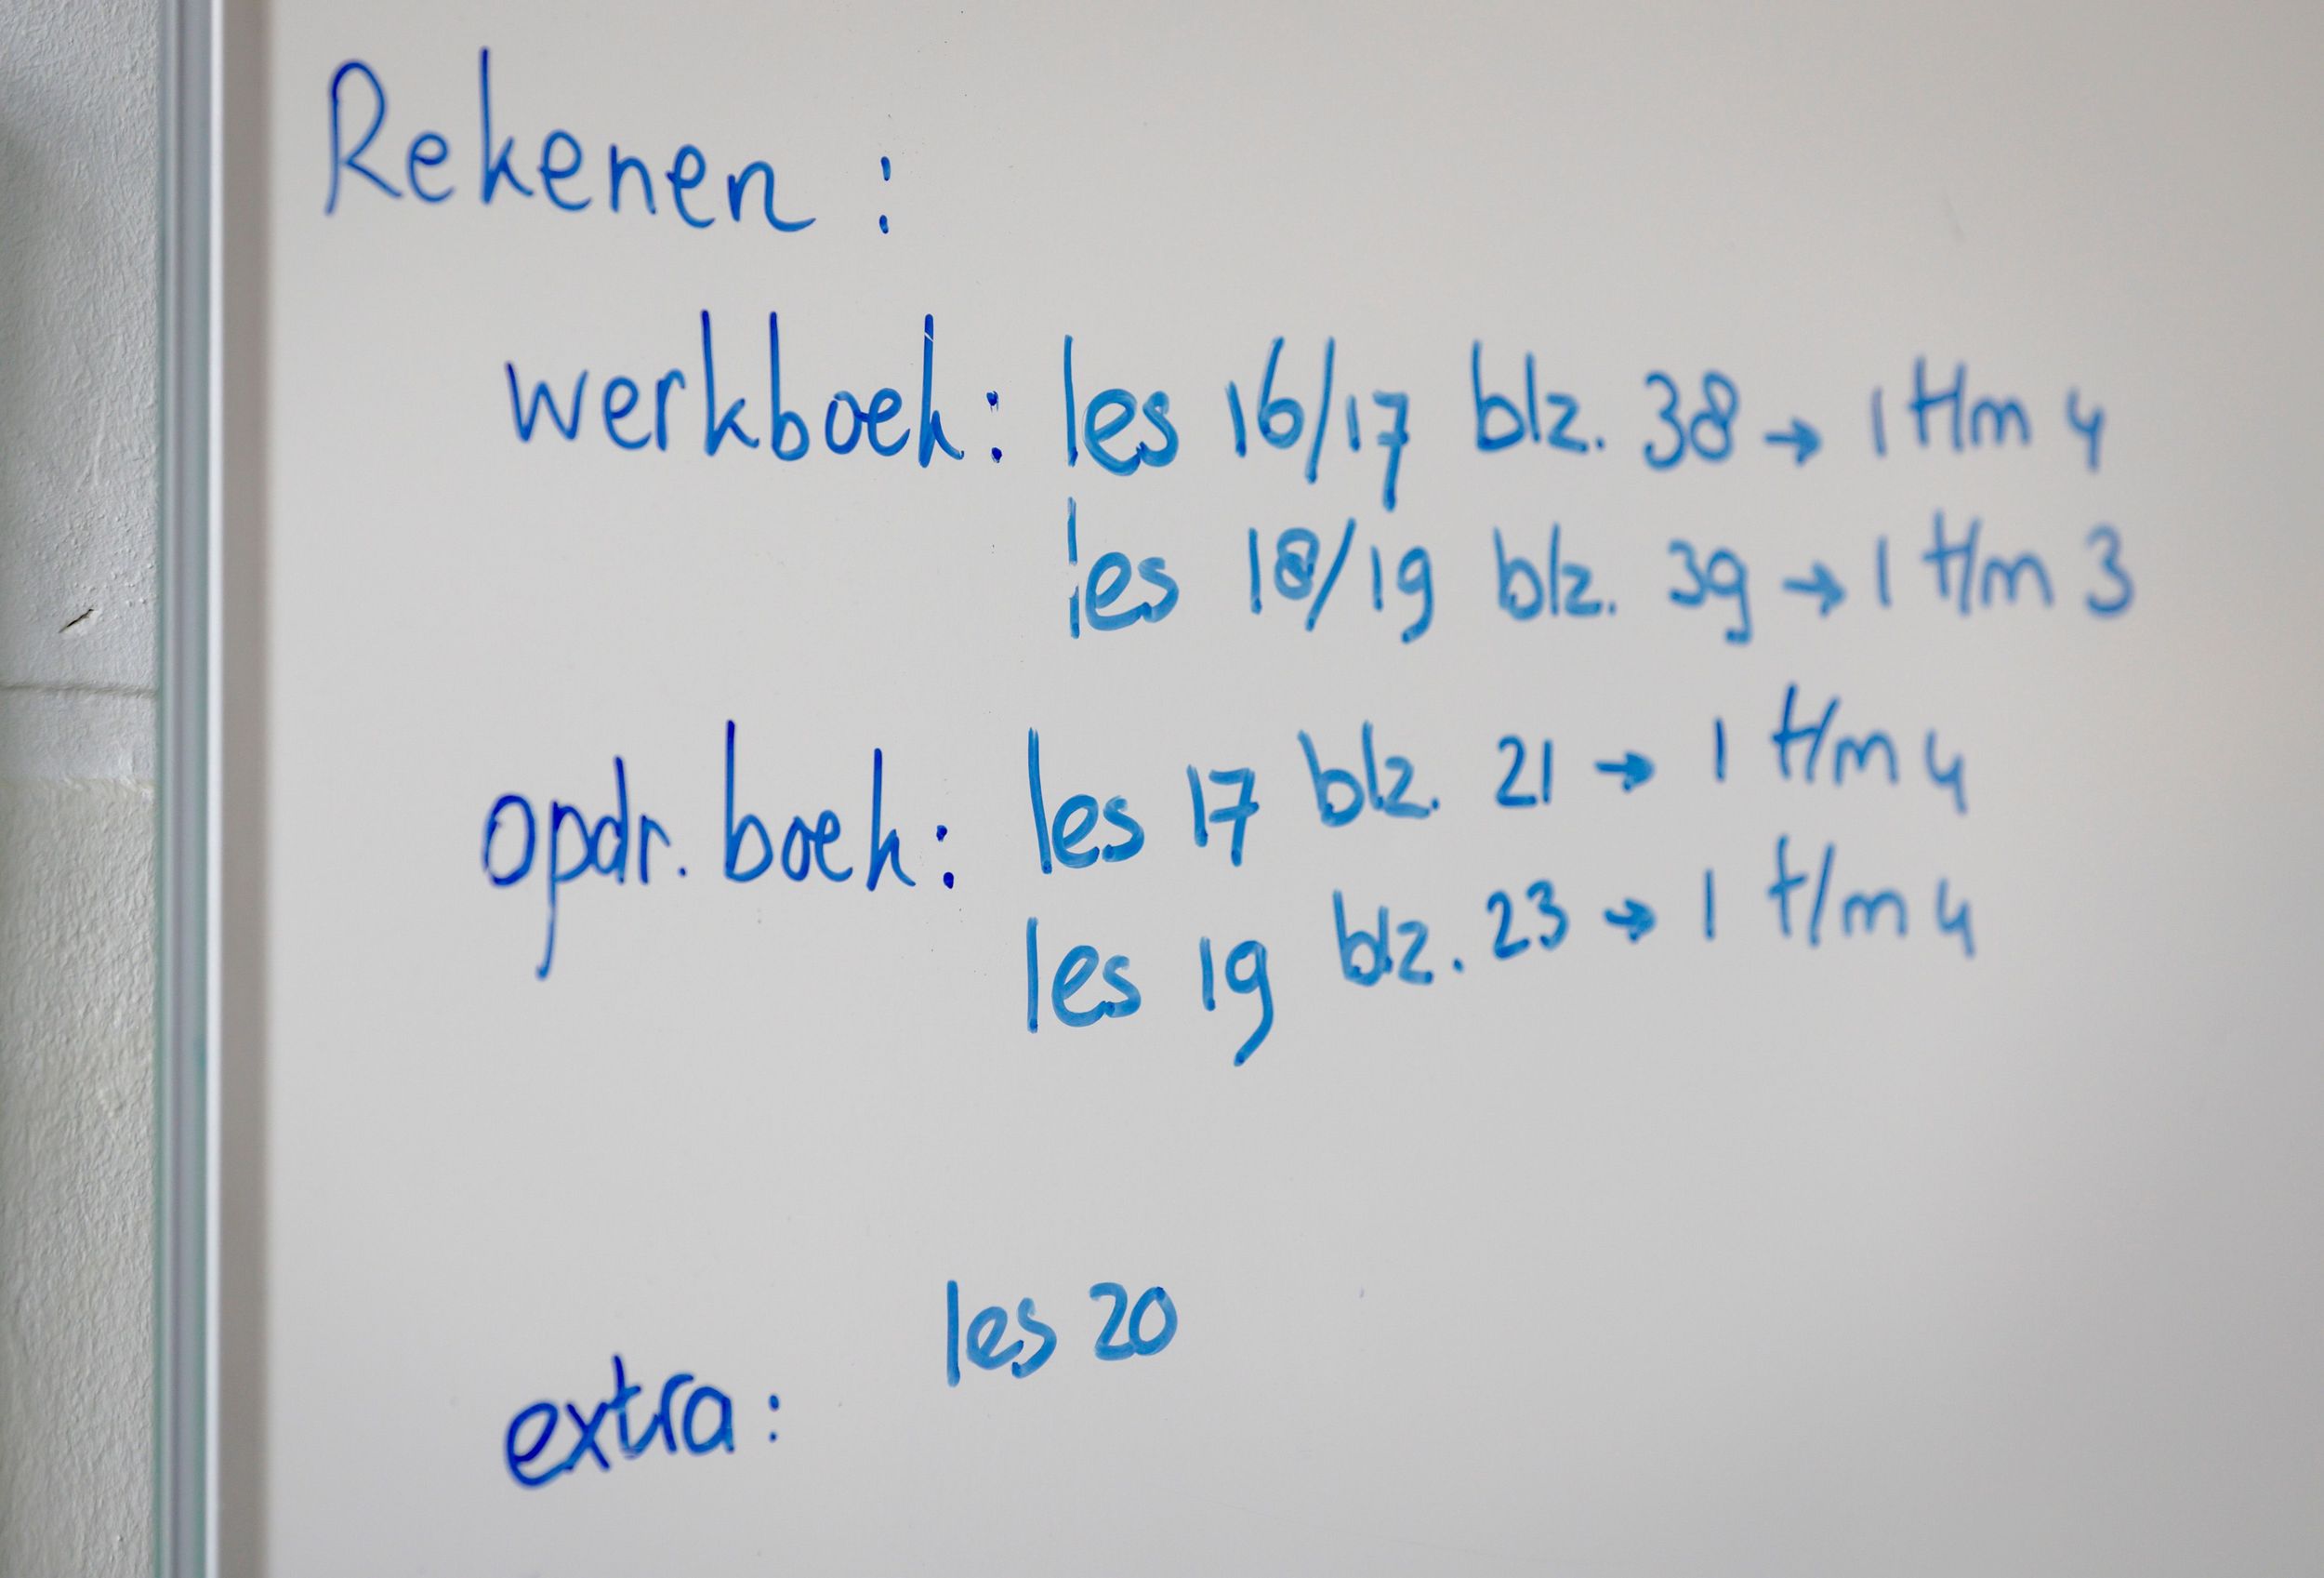 Rekenen :
werkboek: les 16/17 blz. 38 → 1 t/m 4
les 18/19 blz. 39 → 1 t/m 3
opdr. boek: les 17 blz. 21 → 1 t/m 4
les 19 blz. 23 → 1 t/m 4
les 20
extra: